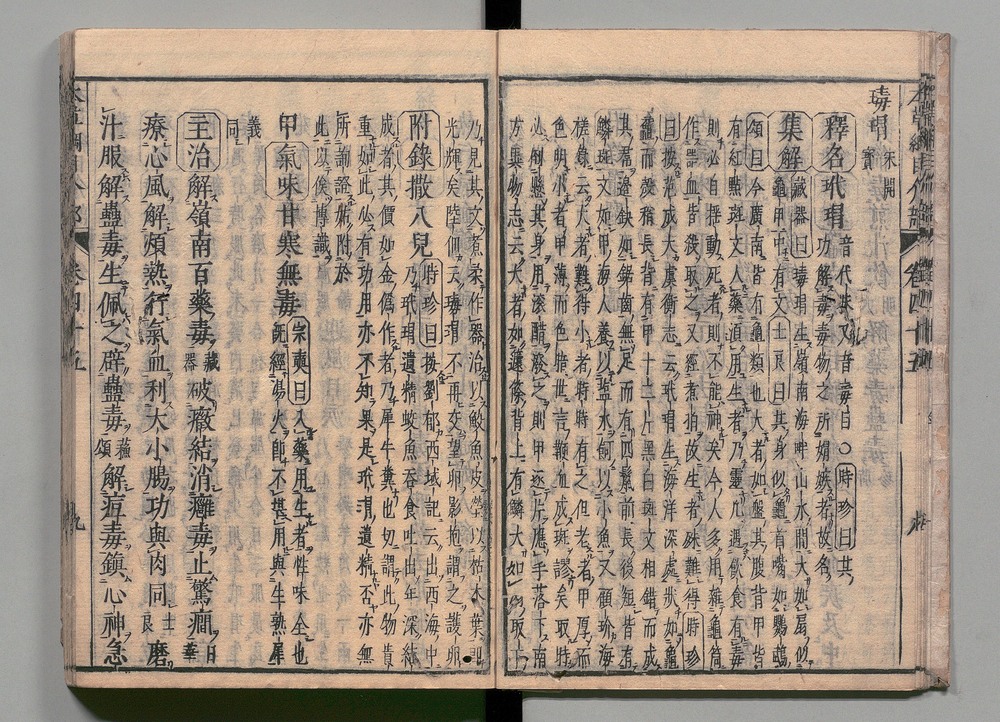 瑇瑁 宋開寶
釋名 玳瑁 音代昧又音毒目○時珍曰其
功解毒毒物之所媢嫉者故名
集解 藏器曰瑇瑁生嶺南海畔山水間大如扇似
龜甲中有文士良曰其身似龜首嘴如鸚鵡
頌曰今廣南皆有龜類也大者如盤其腹背甲皆
有紅點斑文入藥須用生者乃靈凡遇飲食有毒
則必自搖動死者則不能神矣今人多用雜龜筒
作之皆殺取之又經煮拍故生者殊難得時珍
曰按范成大虞衡志云玳瑁生海洋深處狀如龜
黿而殼稍長背有甲十二片黑白斑文相錯而成
其裙邊缺如鋸齒無足而有四鬛前長後短皆有
鱗斑文如甲海人養以鹽水飼以小魚又顧玠海
槎錄云大者難得小者時時有之但老者甲厚而
色明小者甲薄而色暗世言鞭血成斑謬矣取時
必倒懸其身用滾醋潑之則甲逐片應手落下南
方異物志云大者如籧篨背上有鱗大如扇取下
乃見其文煮柔作器治以鮫魚皮瑩以枯木葉即
光輝矣陸佃云瑇瑁不再交望卵影抱謂之護卵
附錄撒八兒 時珍曰按劉郁西域記云出西海中
乃玳瑁遺精蛟魚吞食吐出年深結
成者其價如金偽作者乃犀牛糞也竊謂此物貴
重如此必有功用亦不知果是玳瑁遺精否亦無
所詢證姑附於
此以俟博識
甲 氣味甘寒無毒 宗奭曰入藥用生者性味全也
既經湯火即不堪用與生熟犀
義同
主治 解嶺南百藥毒藏器破癥結消癰毒止驚癇日華
療心風解煩熱行氣血利大小腸功與肉同士良磨
汁服解蠱毒生佩之辟蠱毒蘇頌解痘毒鎮心神急